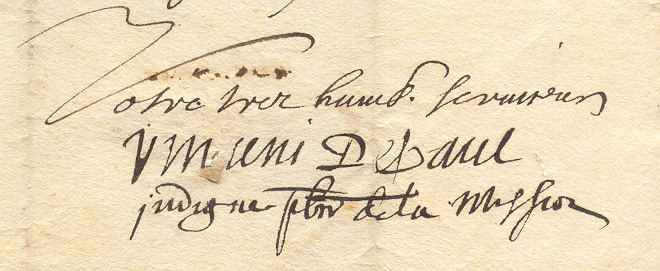 Votre tres humb. serviteur
Vincent Depaul
indigne pbre dela Mission